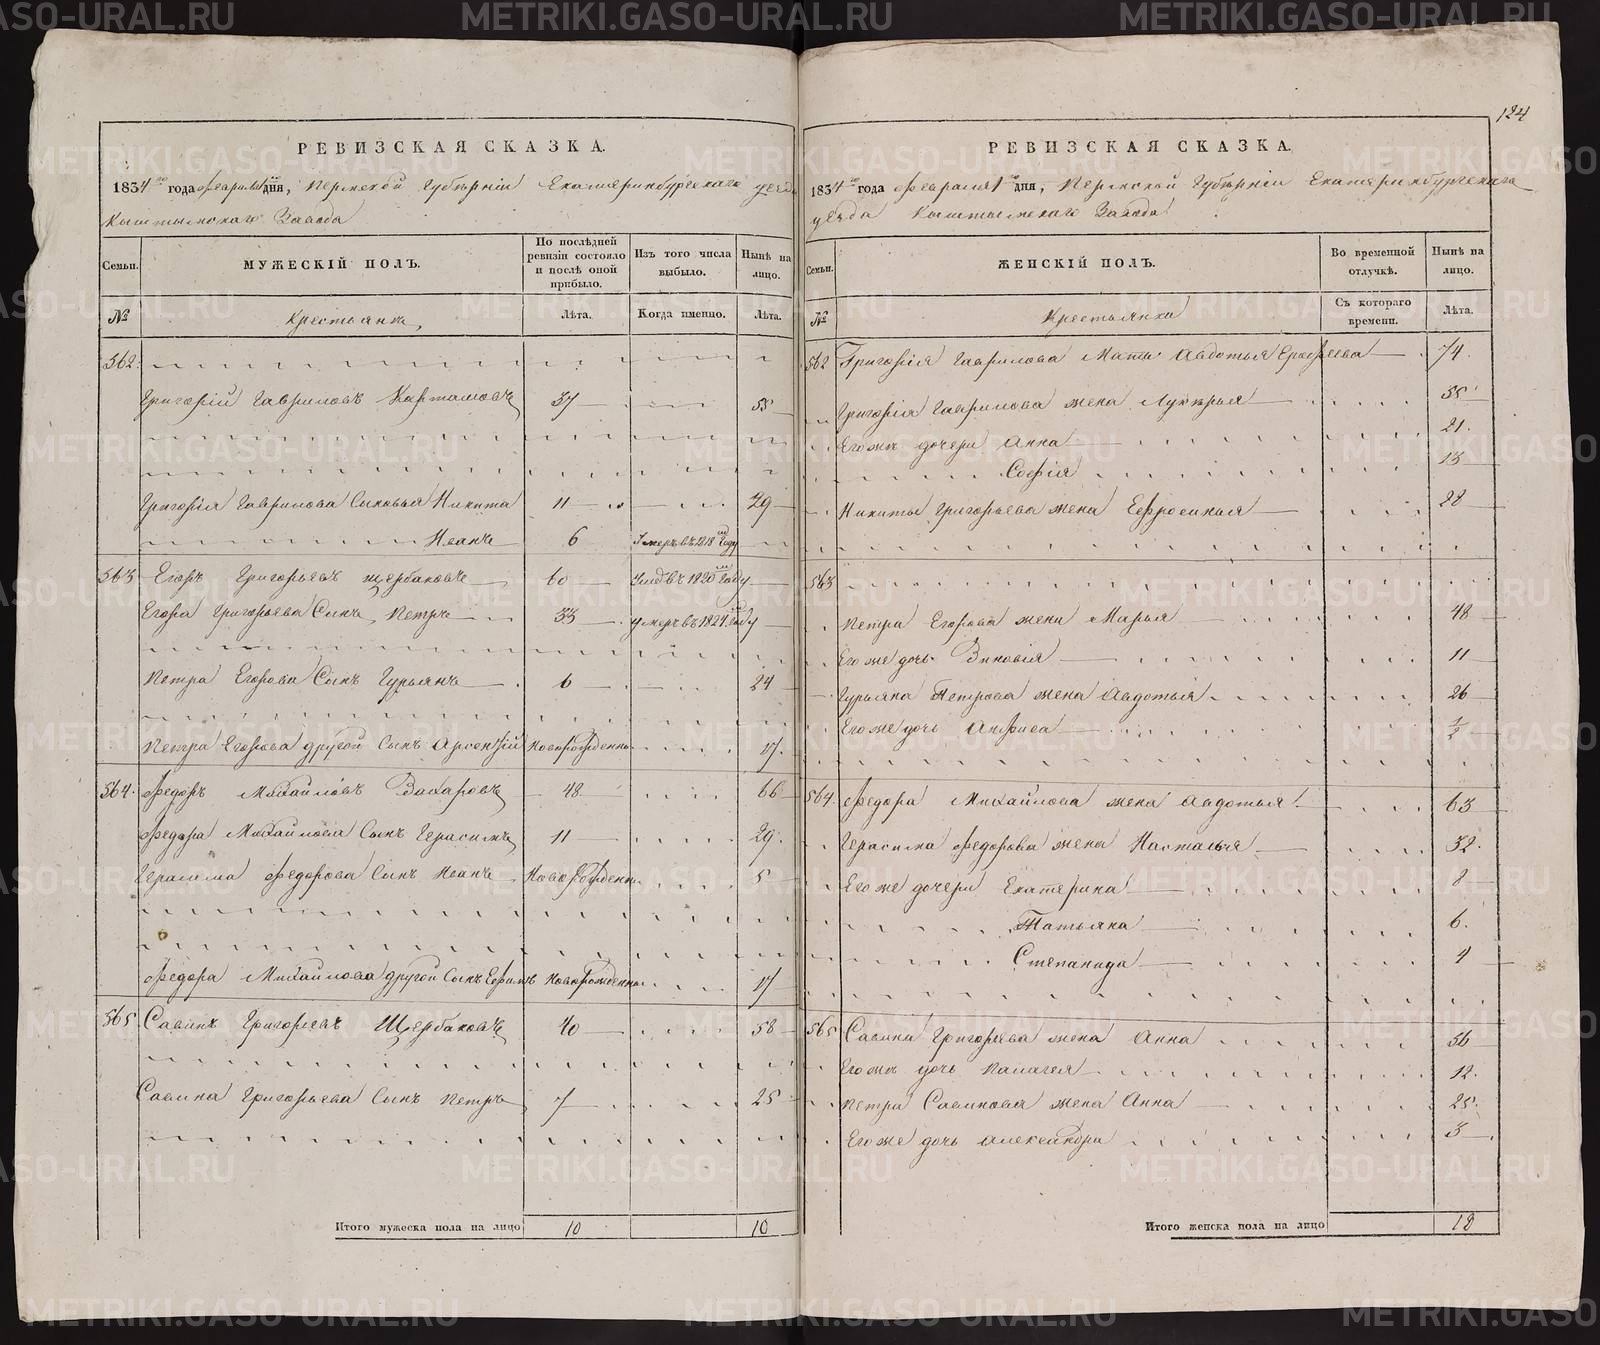 124
РЕВИЗСКАЯ СКАЗКА.
1834го года февраля 1го дня, Пермской Губѣрніи Екатеринбургскаго уезда
Кыштымскаго Завода
Семьи. МУЖЕСКІЙ ПОЛЪ. По послѣдней ревизіи состояло и послѣ оной прибыло. Изъ того числа выбыло. Нынѣ на лицо.
№ Крестьянъ Лѣта. Когда именно. Лѣта.
562.
Григорій Гавриловъ Карталовъ 37 55
Григорія Гаврилова Сыновья Никита 11 29
Иванъ 6 Умеръ въ 1818м Году
563 Егоръ Григорьевъ Щербаковъ 60 Умеръ въ 1820м Году
Егора Григорьева Сынъ Петръ 33 умеръ въ 1824м Году
Петра Егорова Сынъ Гурьянъ 6 24
Петра Егорова другой Сынъ Арсентій Новорожденны 17.
564. Федоръ Михайловъ Захаровъ 48 66
Федора Михайлова Сынъ Герасимъ 11 29.
Герасима Федорова Сынъ Иванъ Новорожденн. 5
Федора Михайлова другой Сынъ Ефимъ Новорожденны 17
565 Савинъ Григорьевъ Щербаковъ 40 58
Савина Григорьева Сынъ Петръ 7 25
Итого мужеска пола на лицо 10 10
РЕВИЗСКАЯ СКАЗКА.
1834го года февраля 1го дня, Пермской Губѣрніи Екатеринбургскаго
уѣзда Кыштымскаго Завода
Семьи. ЖЕНСКІЙ ПОЛЪ. Во временной отлучкѣ. Нынѣ на лицо.
№ Крестьянки Съ котораго времени. Лѣта.
562 Григорія Гаврилова Мать Авдотья Ерофеева 74.
Григорія Гаврилова жена Лукерья 55
Его жъ дочери Анна 21.
Софія 13
Никиты Григорьева жена Ефросинья 28
563
Петра Егорова жена Марья 48
Его же дочь Зиновія 11
Гурьяна Петрова жена Авдотья 26
Его же дочь Анфиса 1/2
564. Федора Михайлова жена Авдотья 63
Герасима Федорова жена Настасья 32.
Его же дочери Екатерина 8
Татьяна 6.
Степанида 4
565 Савина Григорьева жена Анна 56
Его жъ дочь Палагея 12.
Петра Савинова жена Анна 25.
Его же дочь Александра 3
Итого женска пола на лицо 18
METRIKI.GASO-URAL.RU